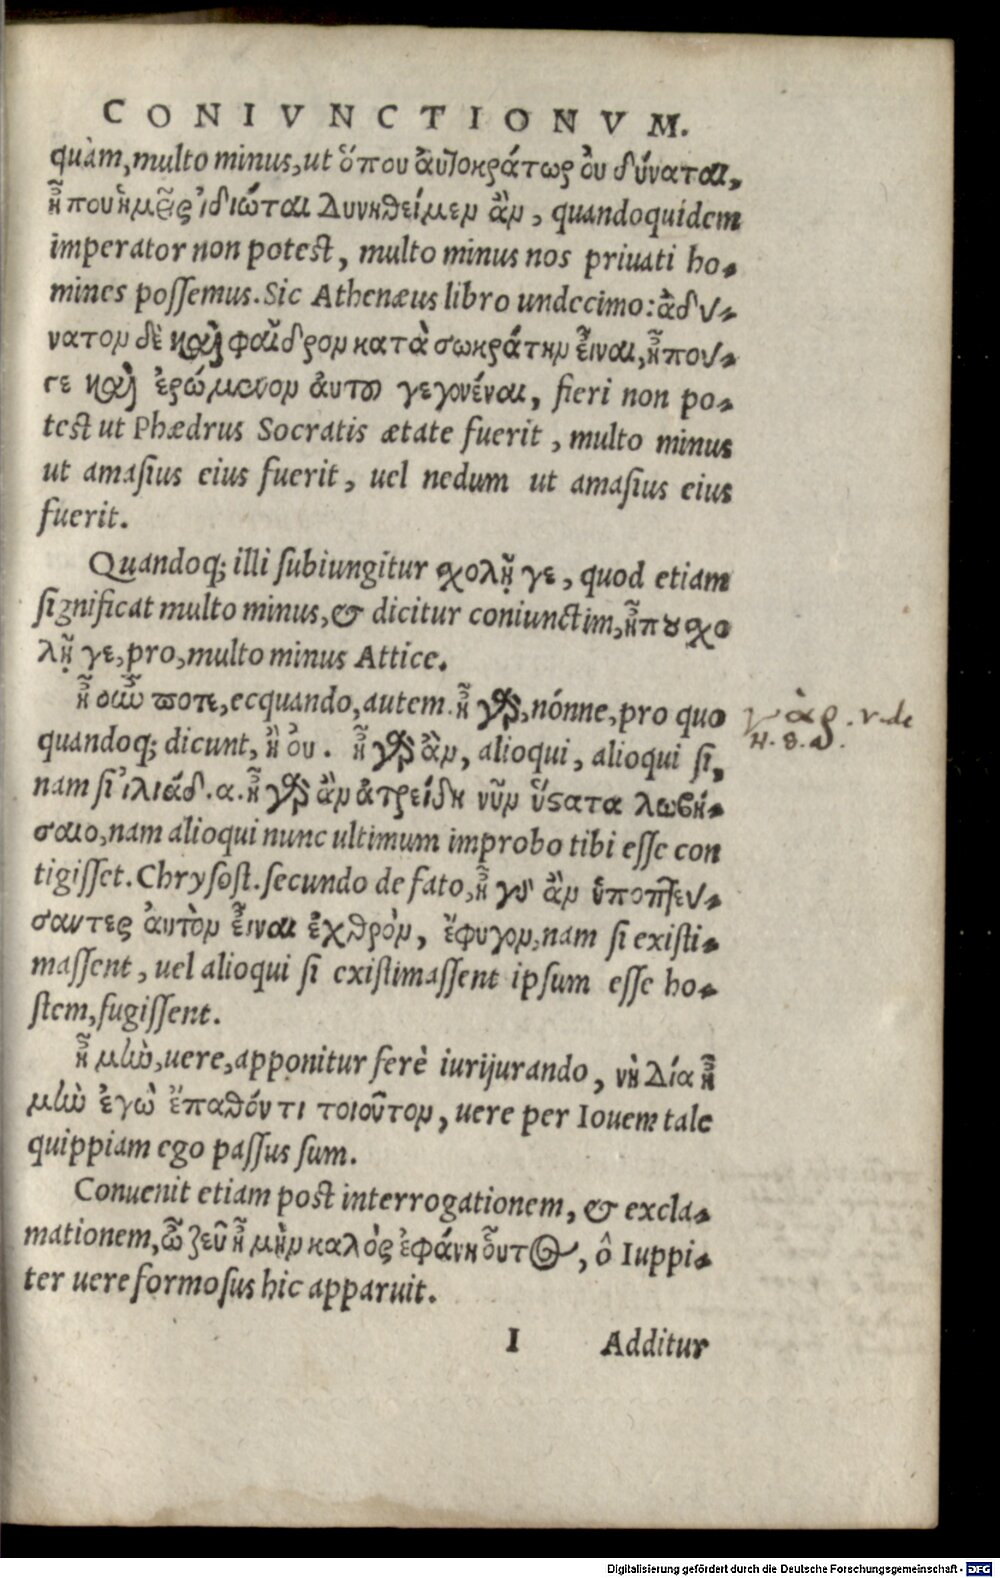 CONIVNCTIONVM.
quàm, multo minus, ut ὅπου ἀυτοκράτωρ ὀυ δύναται,
ἦπου ἡμᾶς ἰδιώται Δυνηθείμεν ἂν, quandoquidem
imperator non potest, multo minus nos priuati ho-
mines possemus. Sic Athenæus libro undecimo: ἀδυ-
νατον δὲ καὶ φαῖδρον κατὰ σωκράτην εἶναι, ἦπου-
γε καὶ ἐρώμενον ἀυτοῦ γεγονέναι, fieri non po-
test ut Phædrus Socratis ætate fuerit, multo minus
ut amasius eius fuerit, uel nedum ut amasius eius
fuerit.
Quandoq; illi subiungitur σχολῇ γε, quod etiam
significat multo minus, & dicitur coniunctim, ἦπου σχο
λῇ γε, pro, multo minus Attice.
ἦ ποτε, ecquando, autem. ἦ γὰρ, nónne, pro quo
quandoq; dicunt, ἢ ὀυ. ἦ γὰρ ἂν, alioqui, alioqui si,
nam si ἰλιάδ. α. ἦ γὰρ ἂν ἀτρείδη νῦν ὕστατα λωβή-
σαιο, nam alioqui nunc ultimum improbo tibi esse con
tigisset. Chrysost. secundo de fato, ἦ γὰρ ἂν ὑποπτεύ-
σαντες ἀυτὸν εἶναι ἐχθρὸν, ἔφυγον, nam si existi-
massent, uel alioqui si existimassent ipsum esse ho-
stem, fugissent.
ἦ μὴν, uere, apponitur ferè iurijurando, νὴ Δία ἦ
μὴν ἐγὼ ἔπαθόν τι τοιοῦτον, uere per Iouem tale
quippiam ego passus sum.
Conuenit etiam post interrogationem, & excla-
mationem, ὦ ζεῦ ἦ μὴν καλὸς ἐφάνη οὗτος, ô Iuppi-
ter uere formosus hic apparuit.
I Additur
γὰρ. v. de
Digitalisierung gefördert durch die Deutsche Forschungsgemeinschaft - DFG